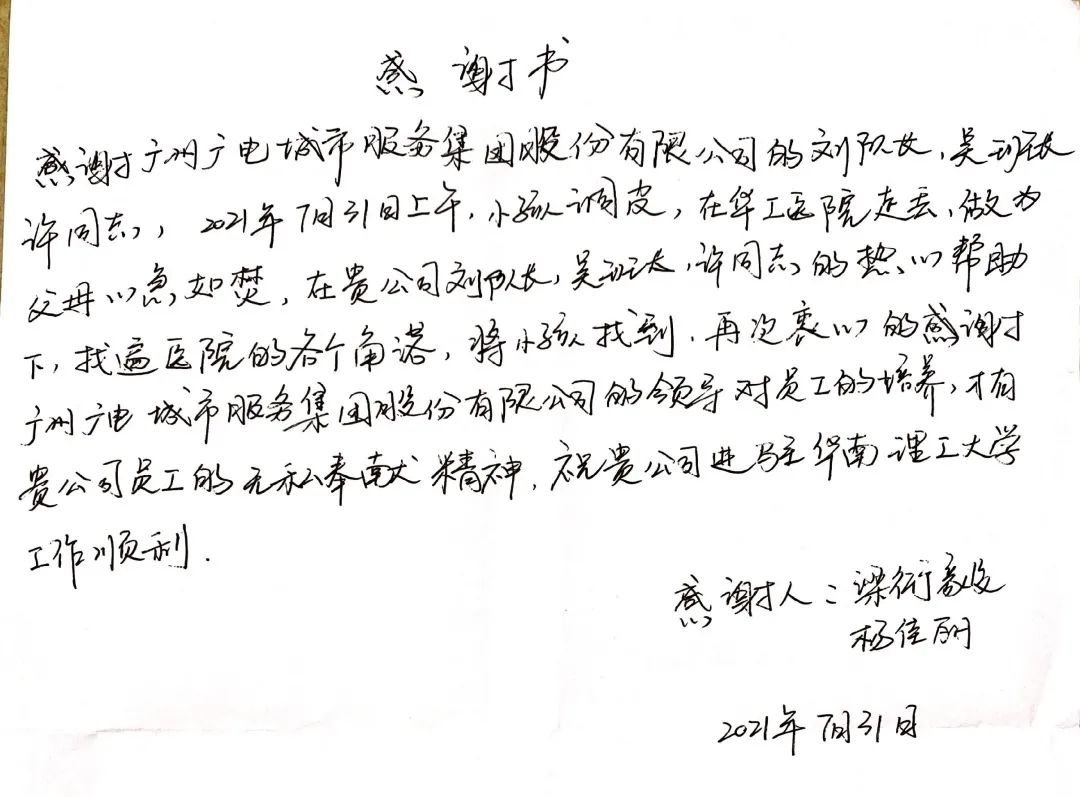 感谢书
感谢广州广电城市服务集团股份有限公司的刘队长,吴班长
许同志,2021年7月31日上午,小孩调皮,在华工医院走丢,做为
父母心急如焚,在贵公司刘队长,吴班长,许同志的热心帮助
下,找遍医院的各个角落,将小孩找到.再次衷心的感谢
广州广电城市服务集团股份有限公司的领导对员工的培养,才有
贵公司员工的无私奉献精神,祝贵公司进驻华南理工大学
工作顺利.
感谢人:梁衍
杨佳丽
2021年7月31日